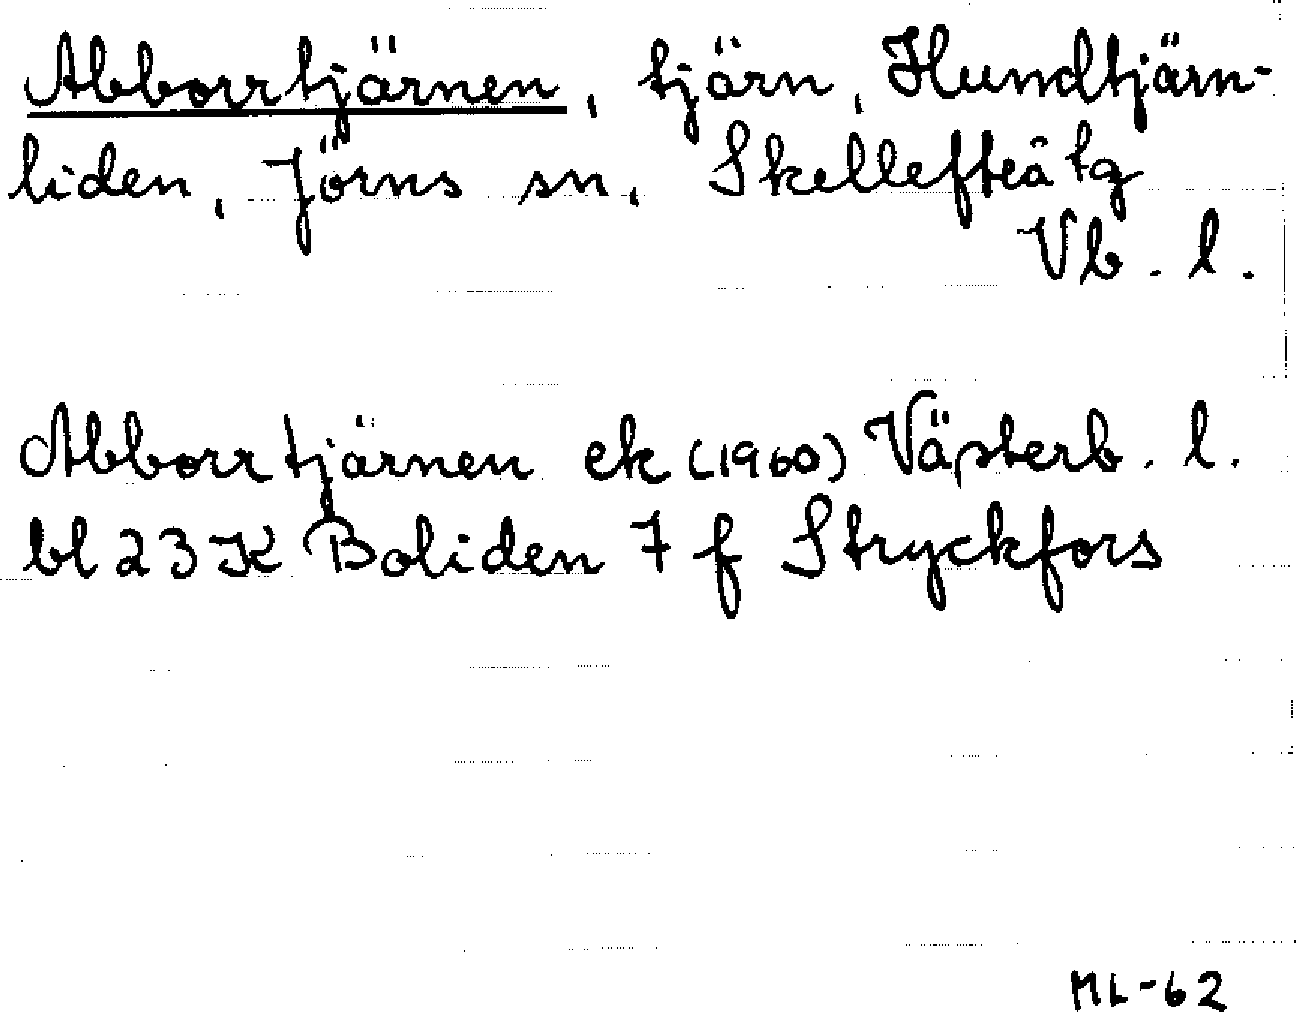 Abborrtjärnen, tjärn, Hundtjärn-
liden, Jörns sn, Skellefteå tg
Vb. l.
Abborrtjärnen ek (1960) Västerb. l.
bl 23 K Boliden 7 f Stryckfors
ML-62